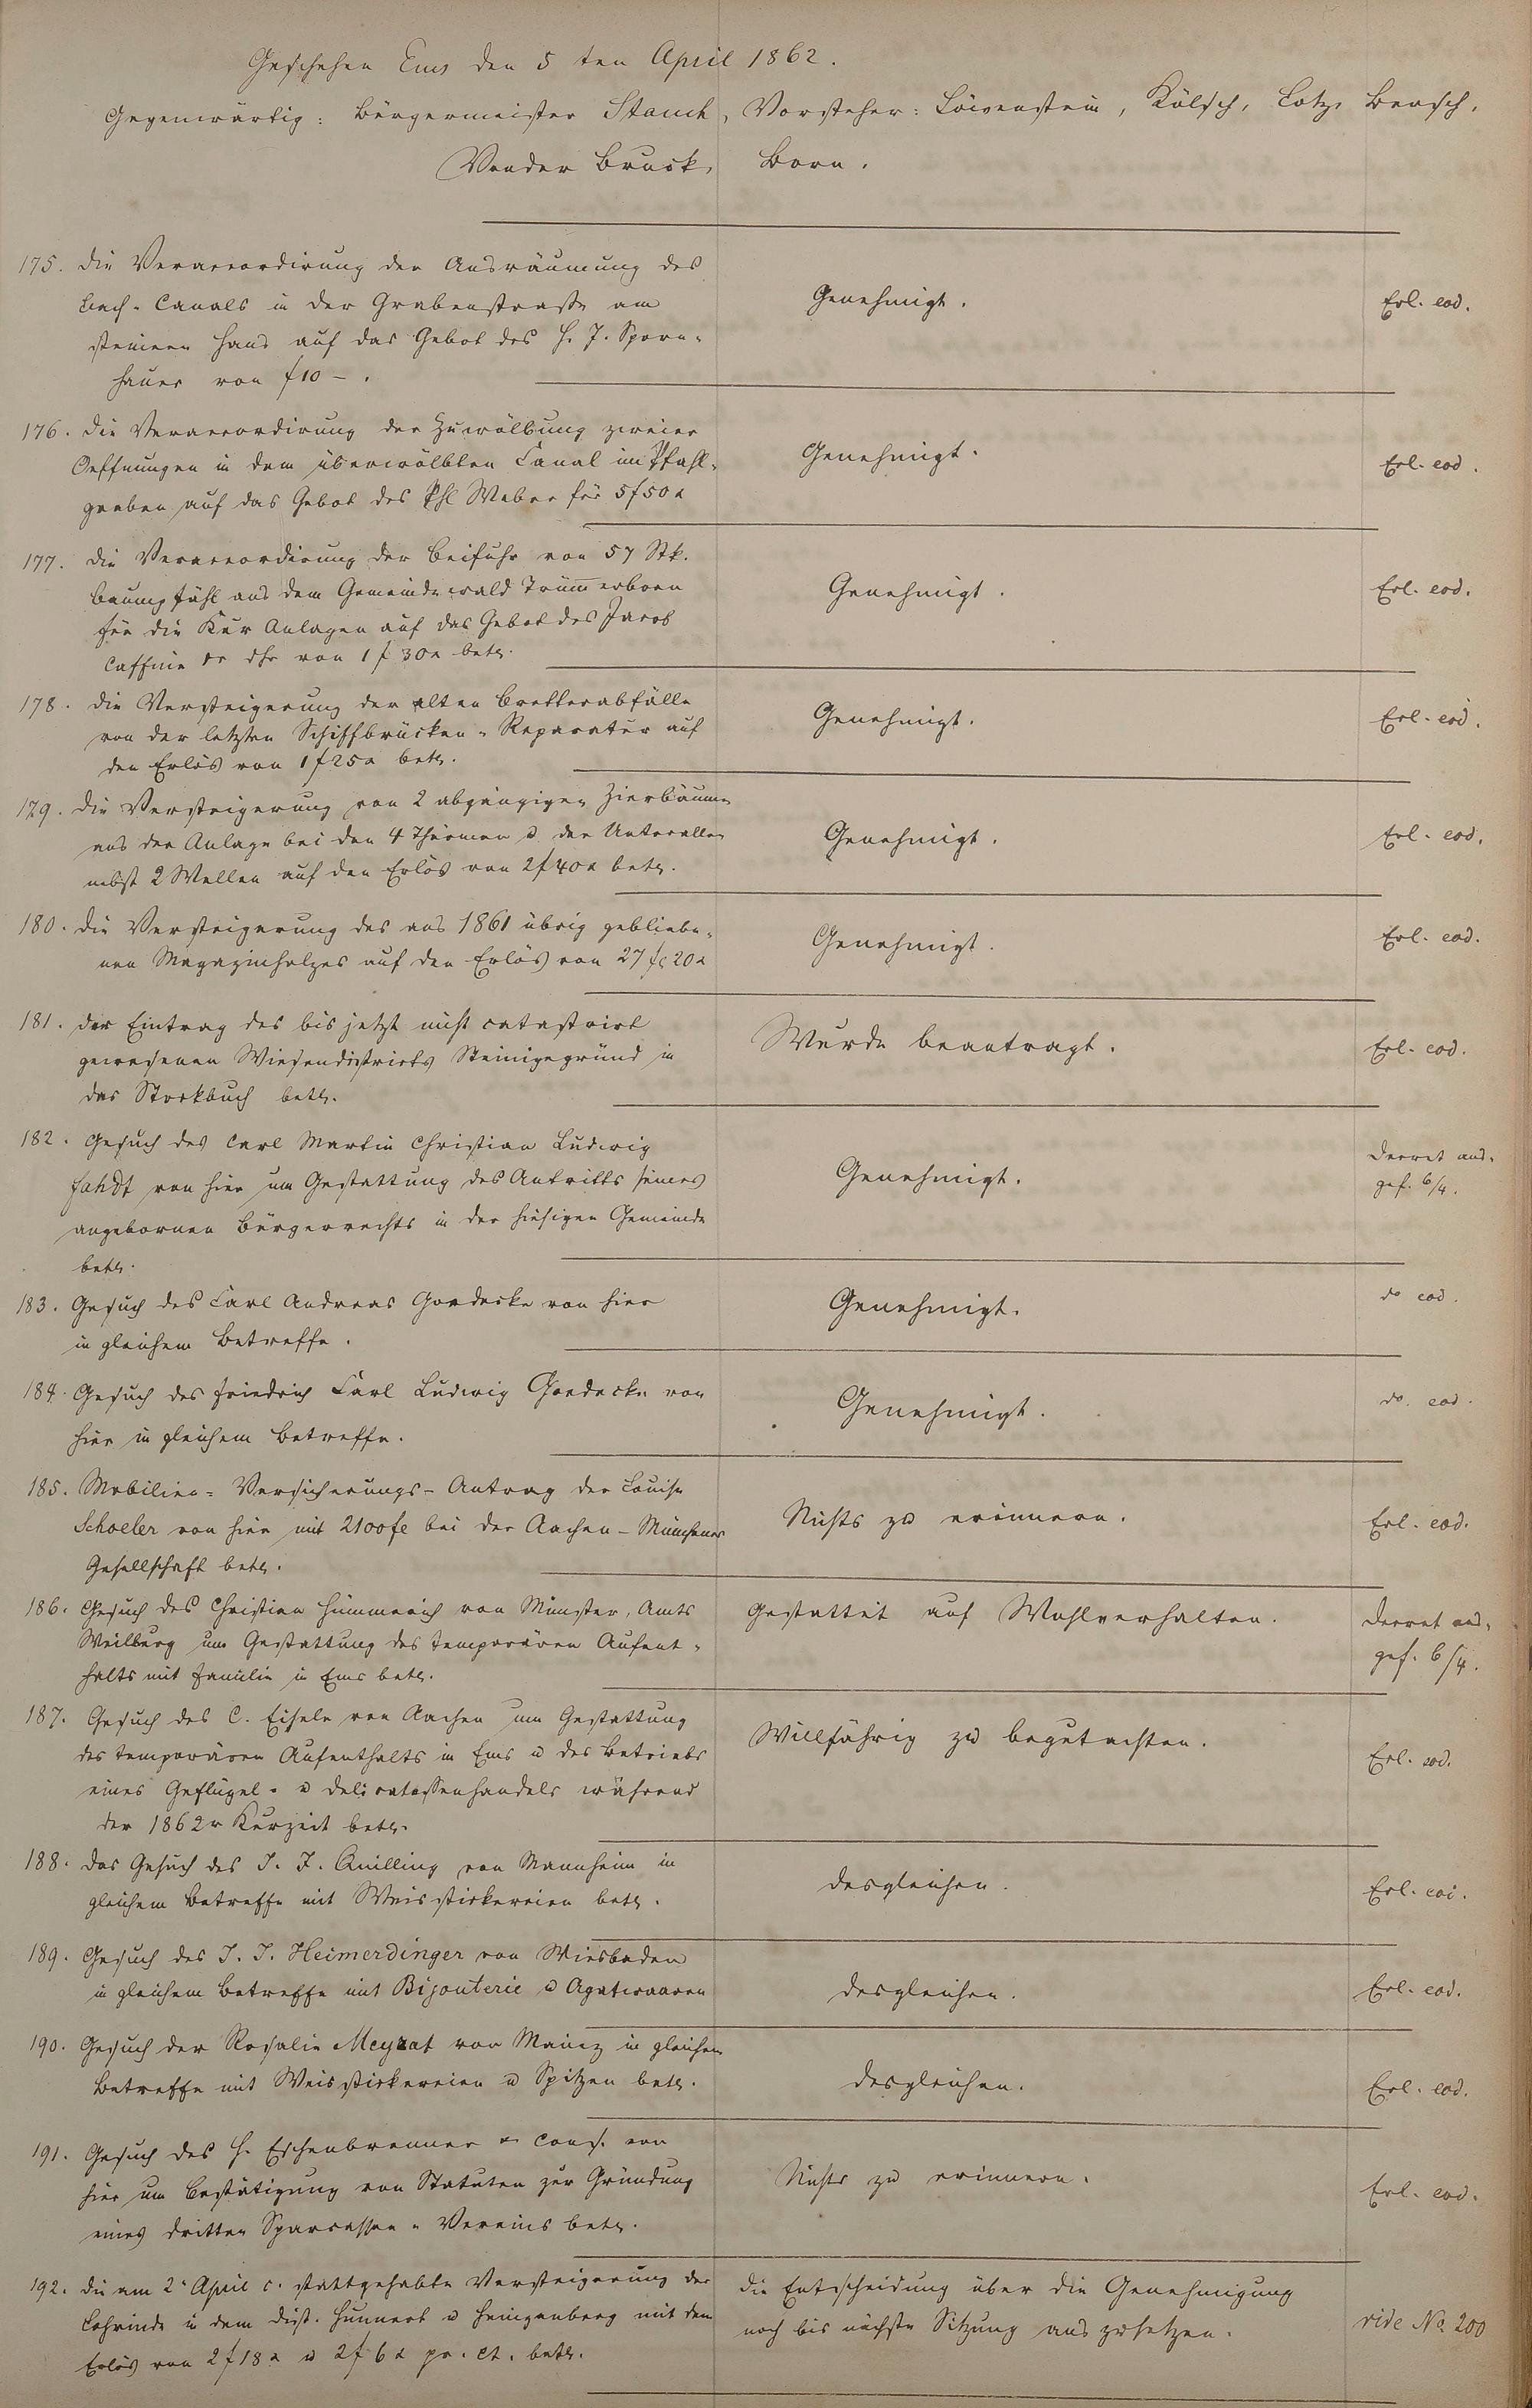 Geschehen Ems den 5 ten April 1862.
Gegenwärtig: Bürgermeister Stauch, Vorsteher: Löwenstein, Kölsch, Lotz, Baasch,
Vonder Bruck, Born.
175. Die Veraccordirung der Ausräumung des
Bach-Canals in der Grabenstraße am
steinern Haus auf das Gebot des H. J. Sporn-
hauer von f 10 – .
Genehmigt.
Erl. eod.
176. Die Veraccordirung der Zuwölbung zweier
Oeffnungen in dem überwölbten Canal im Pfahl-
graben auf das Gebot des Phl Weber für 5 f 50 x
Genehmigt.
Erl. eod.
177. Die Veraccordirung der Beifuhr von 57 Stk.
Baumpfähl aus dem Gemeindewald Trümmerborn
für die Kur Anlagen auf das Gebot des Jacob
Caffine von 1 f 30 x betr.
Genehmigt.
Erl. eod.
178. Die Versteigerung der alten Bretterabfälle
von der letzten Schiffbrücken-Reparatur auf
den Erlös von 1 f 25 x betr.
Genehmigt.
Erl. eod.
179. Die Versteigerung von 2 abgängigen Zierbäumen
aus der Anlage bei den 4 Thürmen u der Unterallee
nebst 2 Wellen auf den Erlös von 2 f 40 x betr.
Genehmigt.
Erl. eod.
180. Die Versteigerung des aus 1861 übrig gebliebe-
nen Magazinholzes auf den Erlös von 27 fl 20 x
Genehmigt.
Erl. eod.
181. Der Eintrag des bis jetzt nicht catastrirt
gewesenen Wiesendistricts Steinigegründ in
das Stockbuch betr.
Wurde beantragt.
Erl. eod.
182. Gesuch des Carl Martin Christian Ludwig
Fahdt von hier um Gestattung des Antritts seines
angebornen Bürgerrechts in der hiesigen Gemeinde
betr.
Genehmigt.
Decret aus-
gef. 6/4.
183. Gesuch des Carl Andreas Goedecke von hier
in gleichem Betreffe.
Genehmigt.
do eod.
184. Gesuch des Friedrich Carl Ludwig Goedecke von
hier in gleichem Betreffe.
Genehmigt.
do. eod.
185. Mobilien-Versicherungs-Antrag der Louise
Schoeler von hier mit 2100 fl bei der Aachen-Münchener
Gesellschaft betr.
Nichts zu erinnern.
Erl. eod.
186. Gesuch des Christian Hümmerich von Münster, Amts
Weilburg um Gestattung des temporären Aufent-
halts mit Familie in Ems betr.
Gestattet auf Wohlverhalten.
Decret aus-
gef. 6/4.
187. Gesuch des C. Eisele von Aachen um Gestattung
des temporären Aufenthalts in Ems u des Betriebs
eines Geflügel- u Delicatessenhandels während
der 1862r Kurzeit betr.
Willfährig zu begutachten.
Erl. eod.
188. Das Gesuch des J. F. Quilling von Mannheim in
gleichem Betreffe mit Weisstickereien betr.
Desgleichen.
Erl. eod.
189. Gesuch des J. J. Heimerdinger von Wiesbaden
in gleichem Betreffe mit Bijouterie u Agatwaaren
Desgleichen.
Erl. eod.
190. Gesuch der Rosalie Meyrat von Mainz in gleichem
Betreffe mit Weisstickereien u Spitzen betr.
Desgleichen.
Erl. eod.
191. Gesuch des H. Eschenbrenner & Cons. von
hier um Bestätigung von Statuten zur Gründung
eines dritten Sparcassen-Vereins betr.
Nichts zu erinnern.
Erl. eod.
192. Die am 2. April c. stattgehabte Versteigerung der
Lohrinde in dem Dist. Hunnert u Heinzenberg mit dem
Erlös von 2 f 18 x u 2 f 6 x pr. Ct. betr.
Die Entscheidung über die Genehmigung
noch bis nächste Sitzung auszusetzen.
vide No. 200